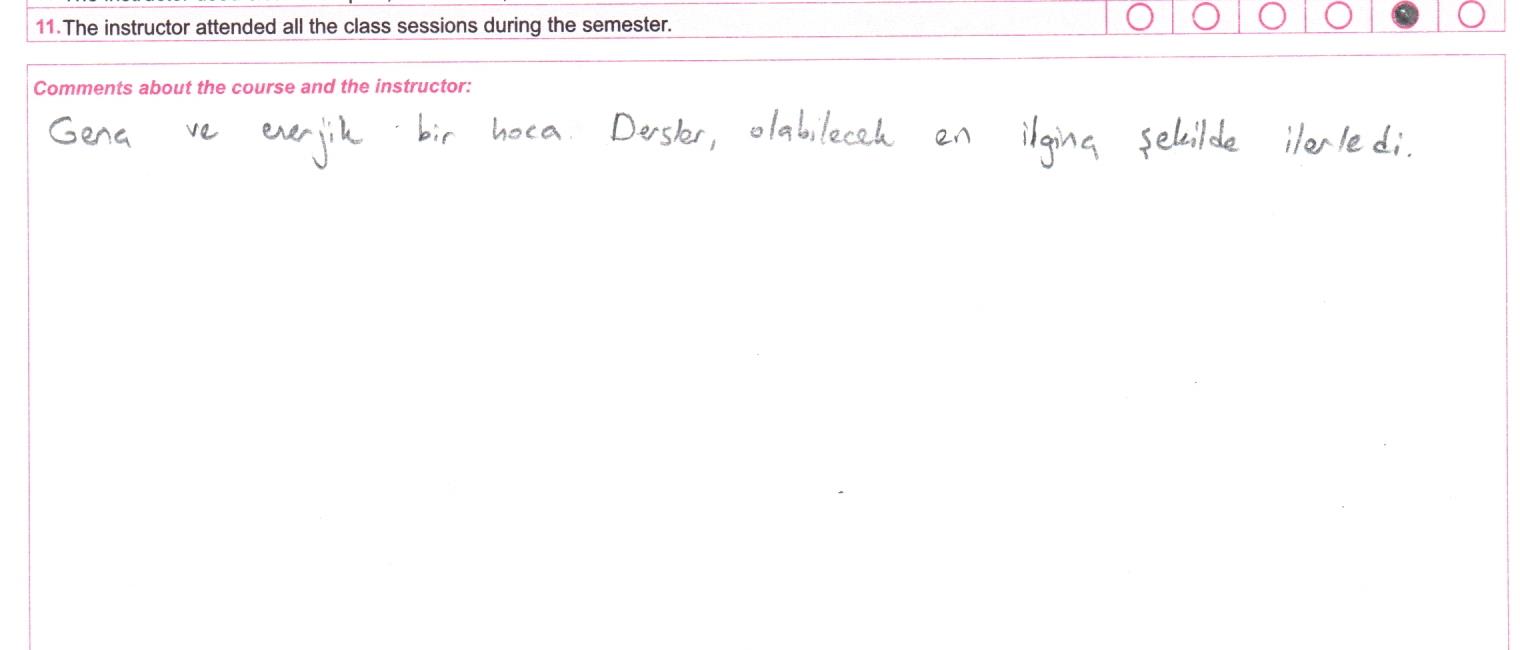 11. The instructor attended all the class sessions during the semester.
Comments about the course and the instructor:
Genç ve enerjik bir hoca. Dersler, olabilecek en ilginç şekilde ilerledi.